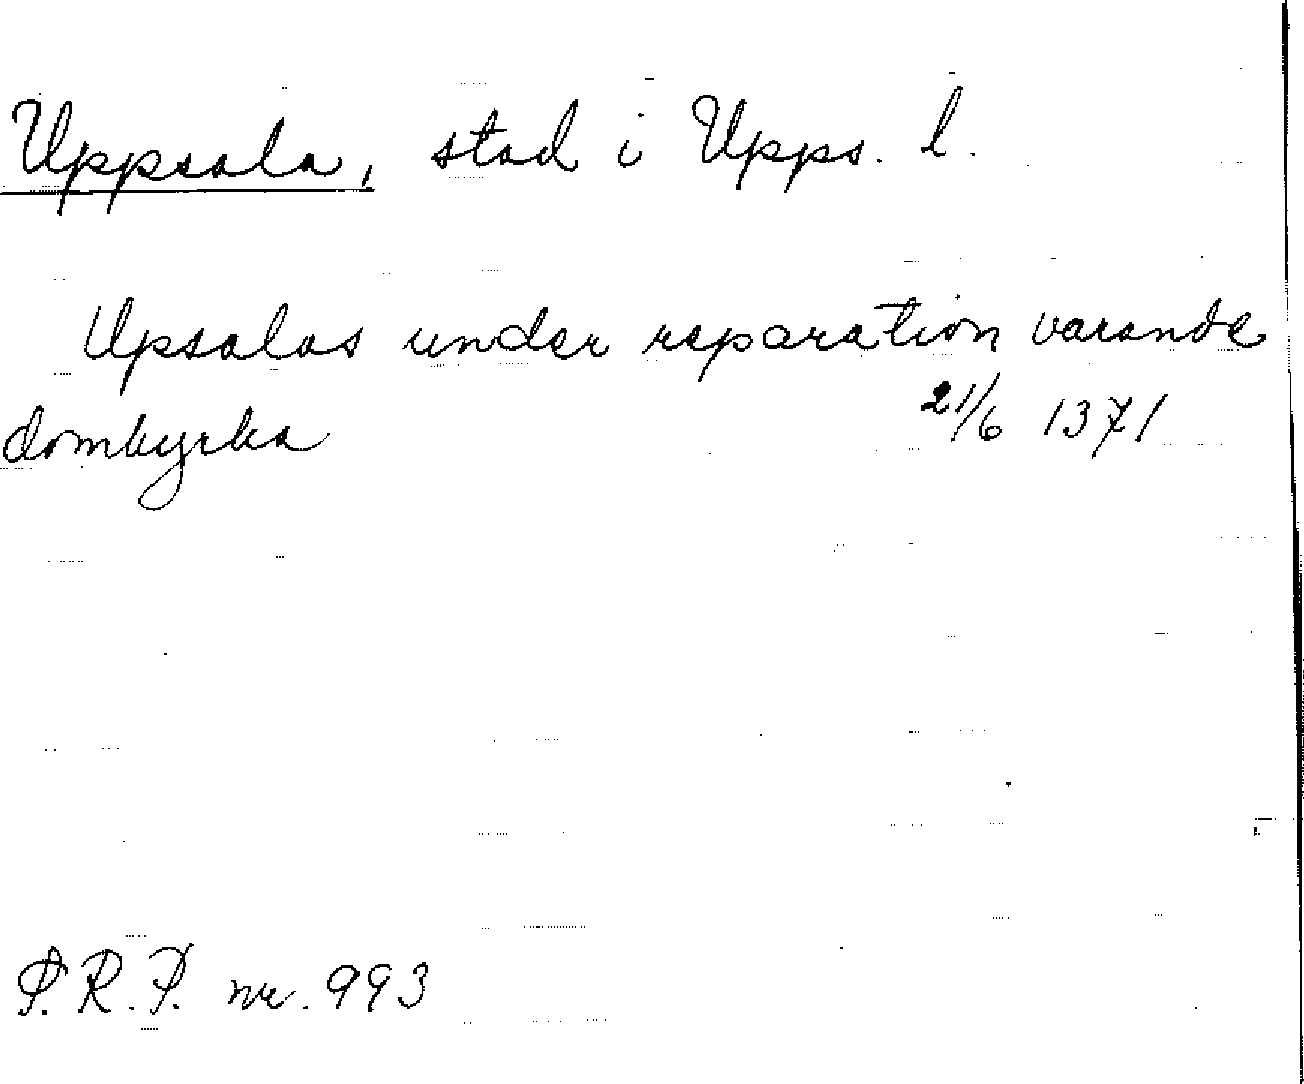 Uppsala, stad i Upps. l.
Upsalas under reparation varande
domkyrka 21/6 1371
P.R.P. nr. 993